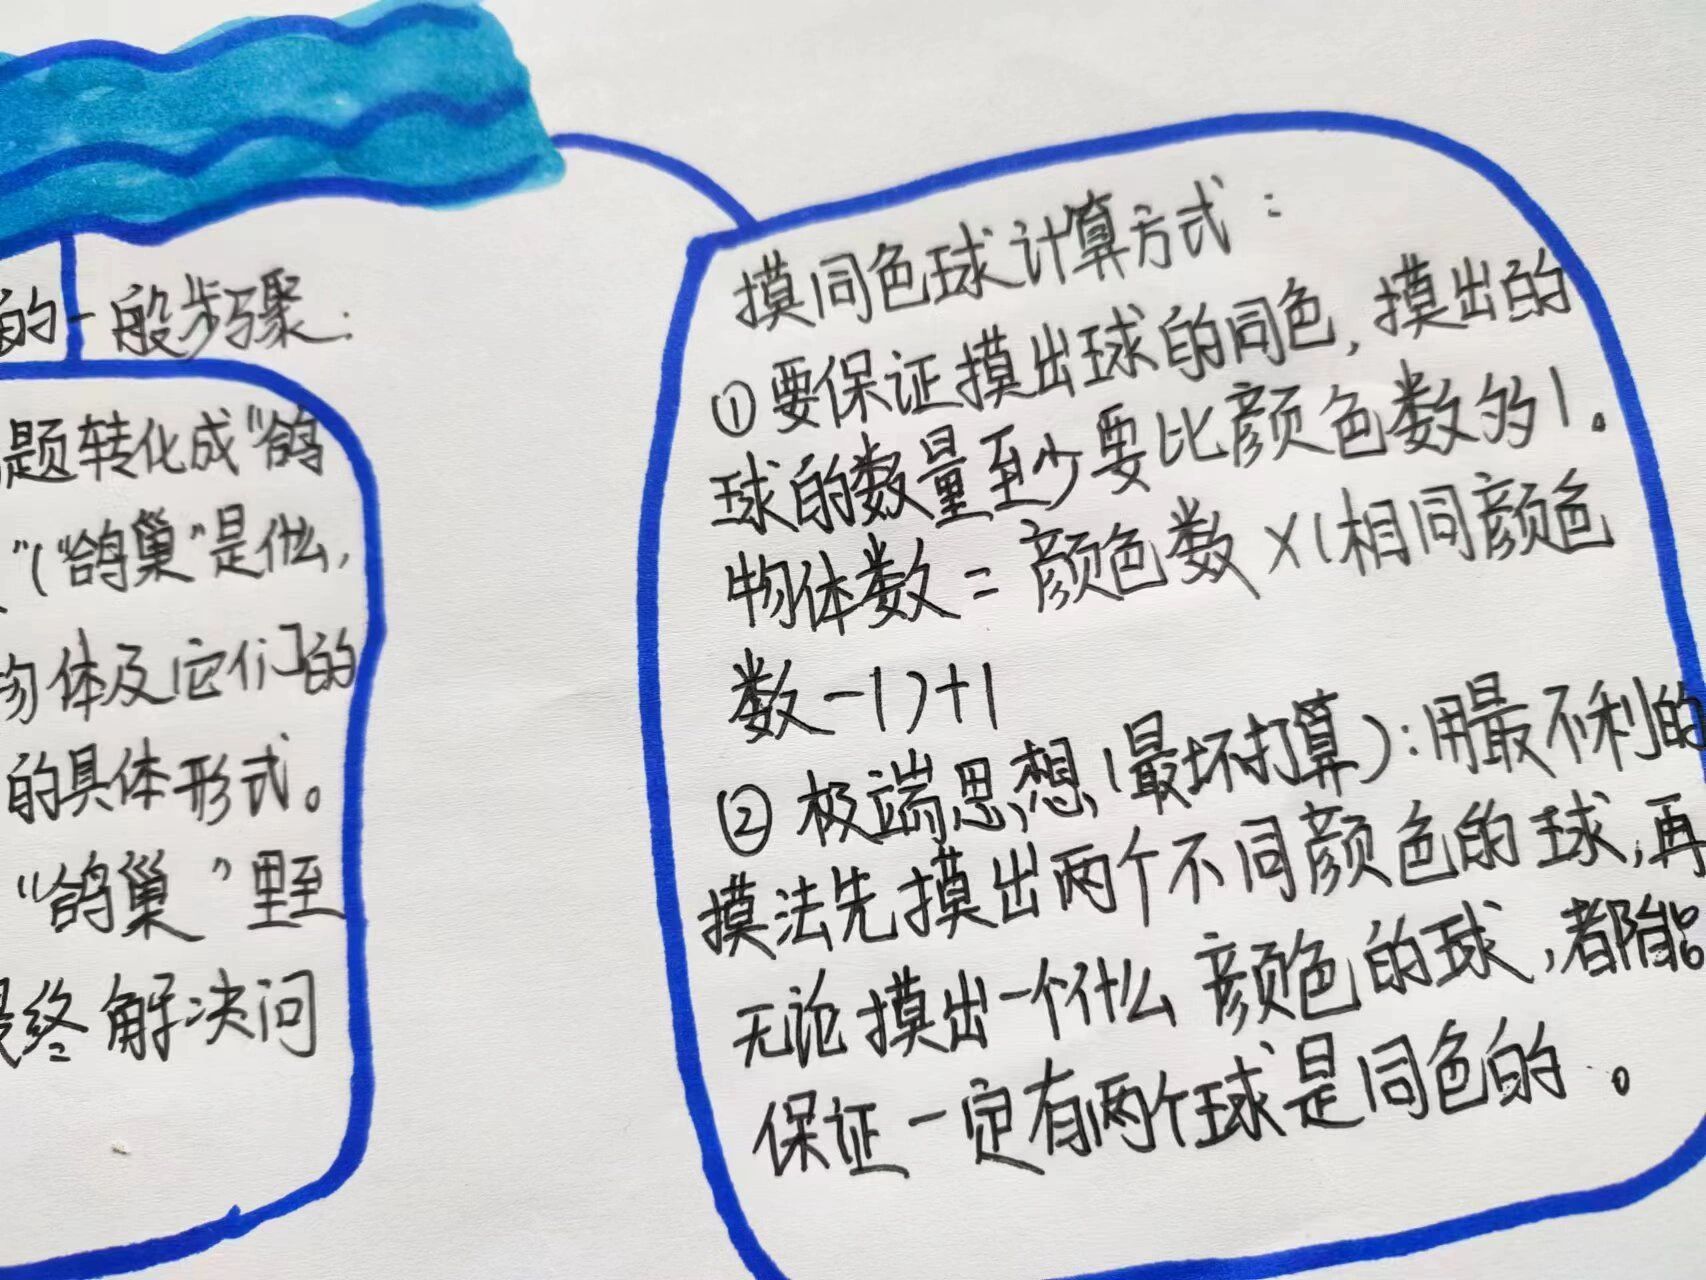 的一般步骤:
题转化成"鸽
"("鸽巢"是什么,
物体及它们的
的具体形式。
"鸽巢"里至
最终解决问
摸同色球计算方式:
①要保证摸出球的同色,摸出的
球的数量至少要比颜色数多1。
物体数=颜色数×(相同颜色
数-1)+1
②极端思想(最坏打算):用最不利的
摸法先摸出两个不同颜色的球,再
无论摸出一个什么颜色的球,都能
保证一定有两个球是同色的。